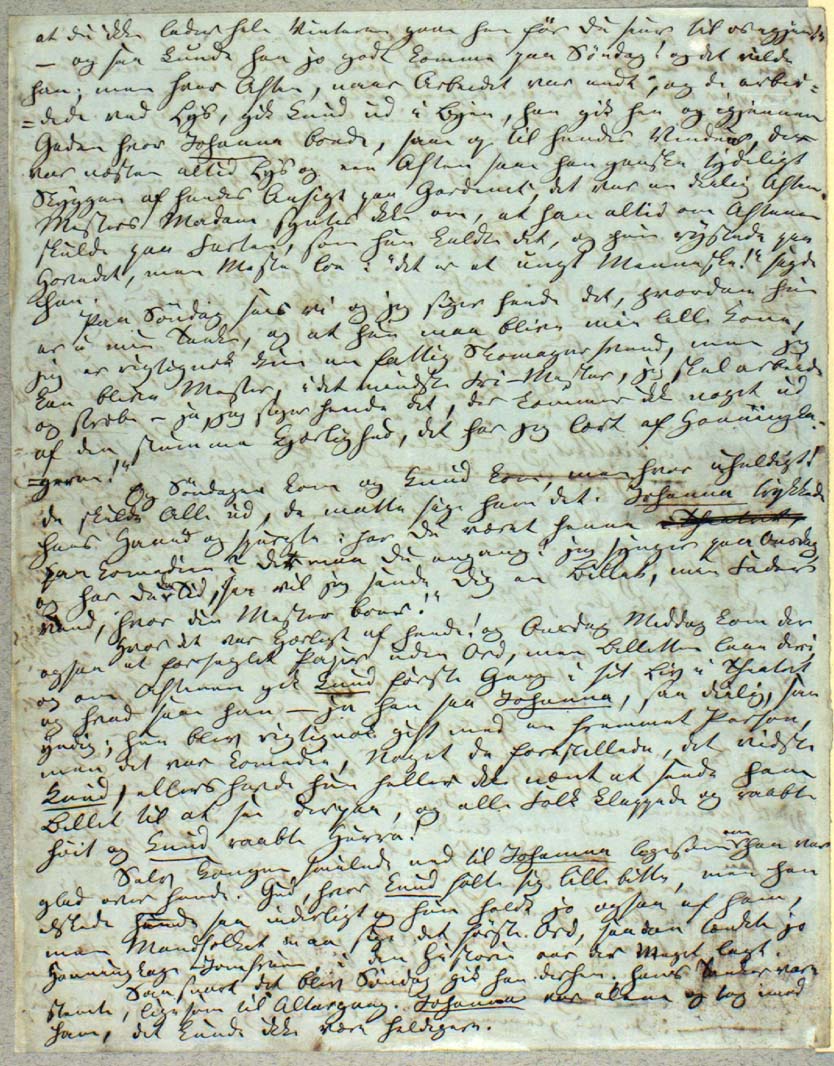 at du ikke lader hele Vinteren gaae hen før du seer til os igjen
– og saa kunde han jo godt komme paa Søndag! og det vilde
han; men hver Aften, naar Arbeidet var endt, og de arbei-
=dede ved Lys, gik Knud ud i Byen, han gik hen og igjennem
Gaden hvor Johanna boede, saae op til hendes Vindue, der
var næsten altid Lys og een Aften saae han ganske tydeligt
Skyggen af hendes Ansigt paa Gardinet, det var en deilig Aften.
Mesters Madam syntes ikke om, at han altid om Aftenen
skulde paa Farten, som hun kaldte det, og hun rystede paa
Hovedet, men Mester loe: "det er et ungt Menneske!" sagde
han.
Paa Søndag sees vi og jeg siger hende det, hvordan hun
er i min Tanke, og at hun maa blive min lille Kone,
jeg er rigtignok kun en fattig Skomagersvend, men jeg
kan blive Mester, i det mindste Fri-Mester, jeg skal arbeide
og stræbe – ja, jeg siger hende det, der kommer ikke noget ud
af den stumme Kjærlighed, det har jeg lært af Honningka-
=gerne!"
Og Søndagen kom og Knud kom, men hvor uheldigt!
de skulde Alle ud, de maatte sige ham det. Johanna trykkede
hans Haand og spurgte: har Du været henne
paa Comedien? det maa Du engang! jeg synger paa Onsdag
og har Du da Tid, saa vil jeg sende Dig en Billet, min Fader
veed, hvor din Mester boer!"
Hvor det var kjærligt af hende! og Onsdag Middag kom der
ogsaa et forseglet Papir uden Ord, men Billetten laae deri
og om Aftenen gik Knud første Gang i sit Liv i Theatret
og hvad saae han – ja han saae Johanna, saa deilig, saa
yndig; hun blev rigtignok gift med en fremmet Person,
men det var Comedie, Noget de forestillede, det vidste
Knud, ellers havde hun heller ikke nænt at sende ham
Billet til at see derpaa, og alle Folk klappede og raabte
høit og Knud raabte Hurra!
Selv Kongen smilede ned til Johanna ligesom om han var
glad over hende. Gud, hvor Knud følte sig lille bitte, men han
elskede hende saa inderligt og hun holdt jo ogsaa af ham,
men Mandfolket maa sige det første Ord, saadan tænkte jo
Honningkage Jomfruen; i den Historie var der Meget lagt.
Saasnart det blev Søndag gik han derhen. hans Tanker vare
stemte, ligesom til Altergang. Johanna var alene og tog imod
ham, det kunde ikke være heldigere.